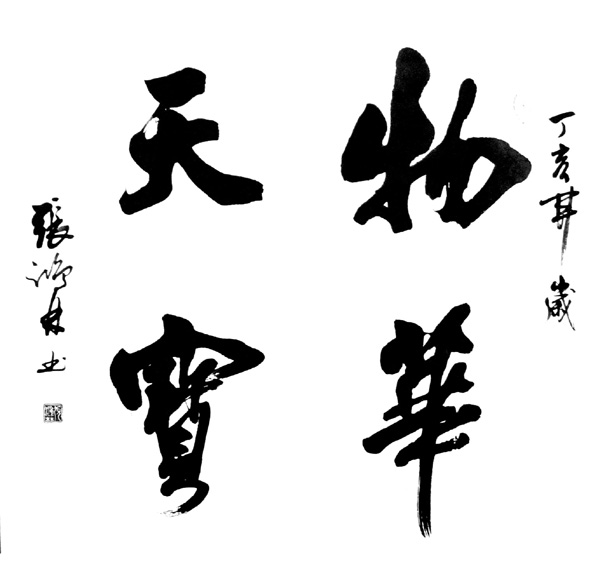 丁亥年 歲
物華
天寶
張鴻林书